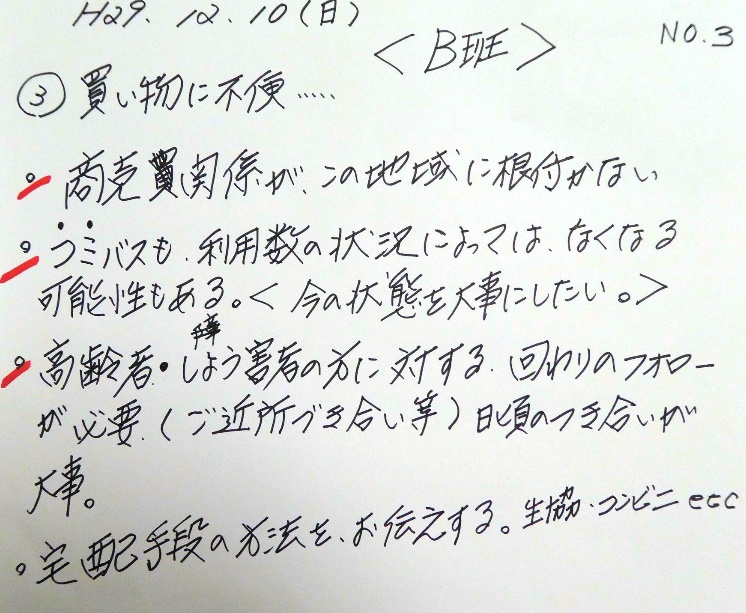 H29.12.10(日)
<B班>
NO.3
③買い物に不便……
。商売買関係が、この地域に根付かない
。コミバスも、利用数の状況によっては、なくなる
可能性もある。<今の状態を大事にしたい。>
。高齢者・しょう害者の方に対する、回わりのフォロー
障
が必要、(ご近所づき合い等)日頃のつき合いが
大事。
。宅配手段の方法を、お伝えする。生協・コンビニ ecc